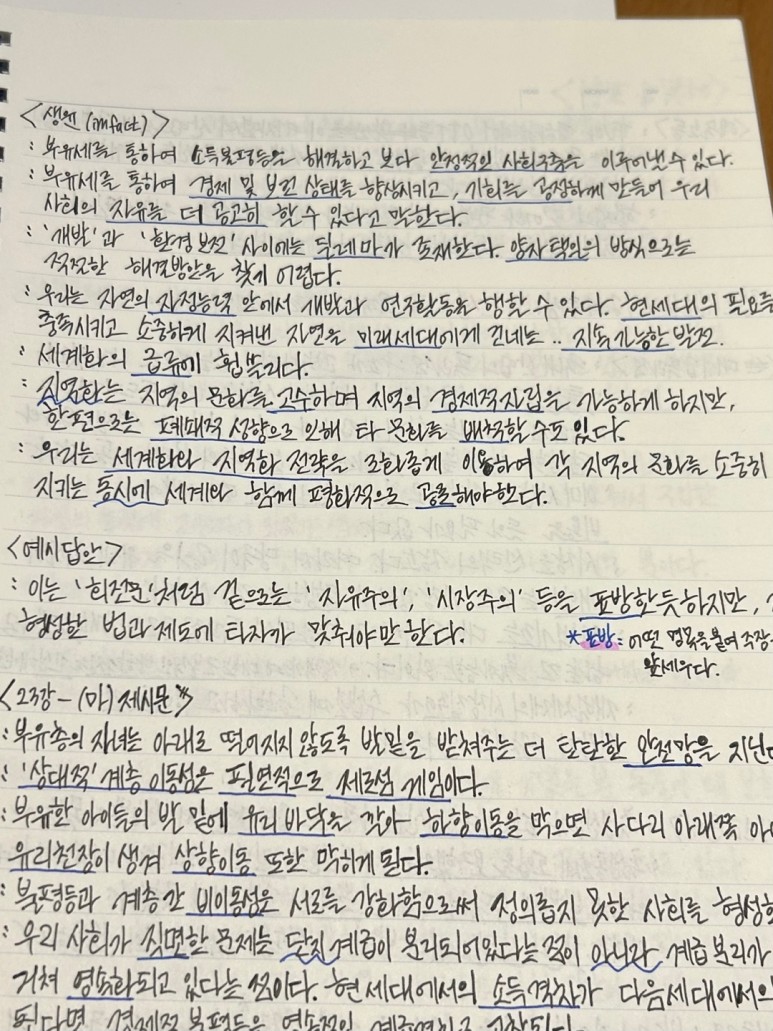 <생윤 (impact)>
: 부유세를 통하여 소득불평등을 해결하고 보다 안정적인 사회구축을 이루어낼 수 있다.
: 부유세를 통하여 경제 및 보건 상태를 향상시키고, 기회를 공정하게 만들어 우리
사회의 자유를 더 공고히 할 수 있다고 말한다.
: '개발'과 '환경 보전' 사이에는 딜레마가 존재한다. 양자택일의 방식으로는
적절한 해결방안을 찾기 어렵다.
: 우리는 자연의 자정능력 안에서 개발과 연구활동을 행할 수 있다. 현세대의 필요를
충족시키고 소중하게 지켜낸 자연을 미래세대에게 건네는 .. 지속가능한 발전.
: 세계화의 급류에 휩쓸리다.
: 지역화는 지역의 문화를 고수하며 지역의 경제적 자립을 가능하게 하지만,
한편으로는 폐쇄적 성향으로 인해 타 문화를 배척할 수도 있다.
: 우리는 세계화와 지역화 전략을 조화롭게 이용하여 각 지역의 문화를 소중히
지키는 동시에 세계와 함께 평화적으로 공존해야한다.
<예시답안>
: 이는 '회전문'처럼 겉으로는 '자유주의', '시장주의' 등을 표방한듯하지만,
형성한 법과 제도에 타자가 맞춰야만 한다.
*표방: 어떤 명목을 붙여 주장
앞세우다.
<23강 - (마) 제시문>
: 부유층의 자녀는 아래로 떨어지지 않도록 발밑을 받쳐주는 더 탄탄한 안전망을 지닌다
: '상대적' 계층 이동성은 필연적으로 제로섬 게임이다.
: 부유한 아이들의 발 밑에 유리바닥을 깔아 하향이동을 막으면 사다리 아래쪽
유리천장이 생겨 상향이동 또한 막히게 된다.
: 불평등과 계층 간 비이동성은 서로를 강화함으로써 정의롭지 못한 사회를 형성
: 우리 사회가 직면한 문제는 단지 계급이 분리되어있다는 점이 아니라 계급 분리가
거쳐 영속화되고 있다는 점이다. 현세대에서의 소득격차가 다음세대에서의
된다면 경제적 불평등은